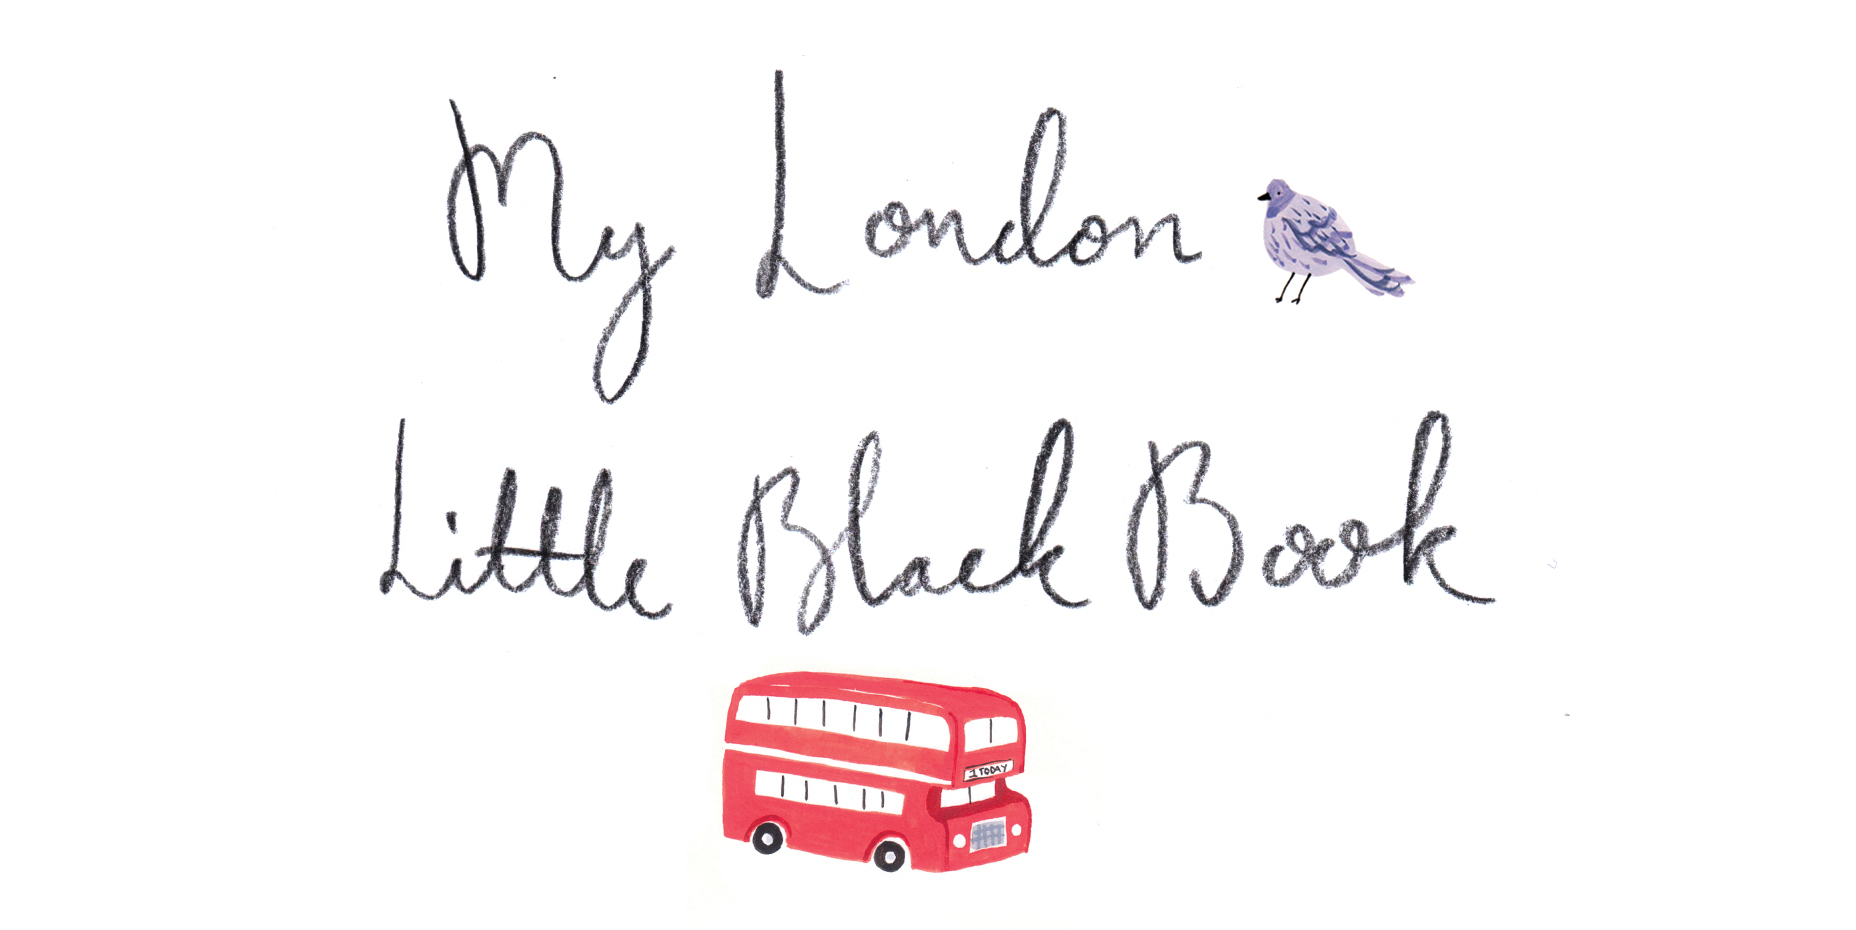 My London
Little Black Book
1 TODAY